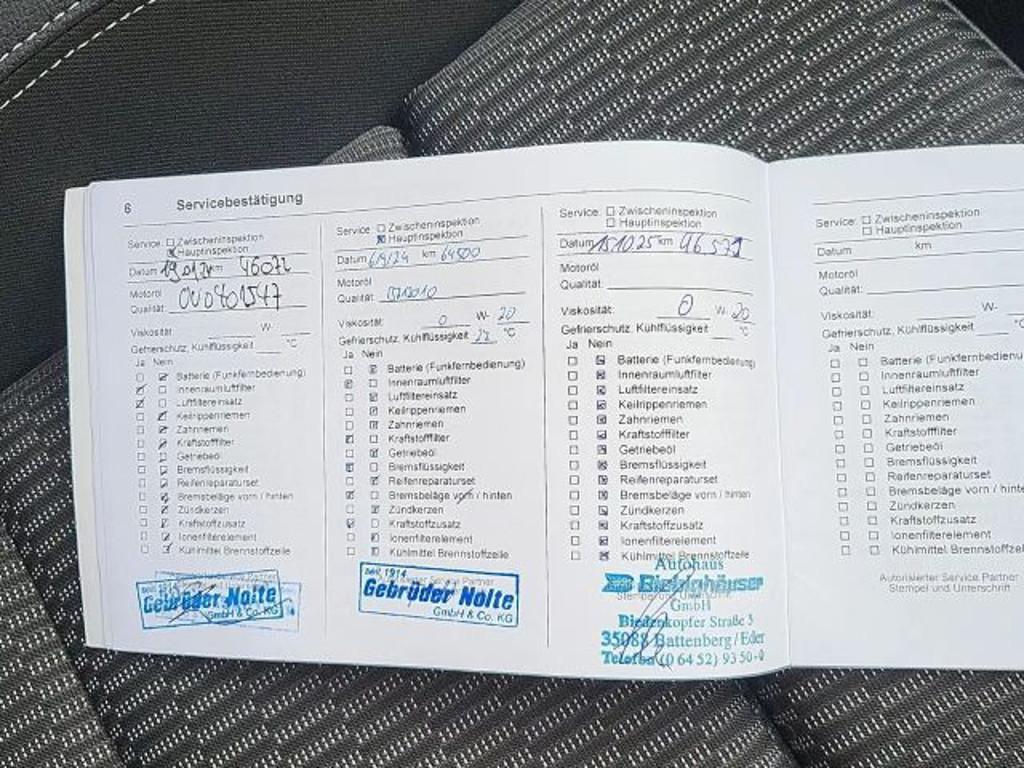 6 Servicebestätigung
Service: Zwischeninspektion
Hauptinspektion
Datum 19.01.24 km 46072
Motoröl
Qualität: OV0401547
Viskosität: W-
Gefrierschutz, Kühlflüssigkeit °C
Ja Nein
Batterie (Funkfernbedienung)
Innenraumluftfilter
Luftfiltereinsatz
Keilrippenriemen
Zahnriemen
Kraftstofffilter
Getriebeöl
Bremsflüssigkeit
Reifenreparaturset
Bremsbeläge vorn / hinten
Zündkerzen
Kraftstoffzusatz
Ionenfilterelement
Kühlmittel Brennstoffzelle
seit 1914
Gebrüder Nolte
GmbH & Co. KG
Service: Zwischeninspektion
Hauptinspektion
Datum 6/9/24 km 64500
Motoröl
Qualität:
Viskosität: 0 W- 20
Gefrierschutz, Kühlflüssigkeit °C
Ja Nein
Batterie (Funkfernbedienung)
Innenraumluftfilter
Luftfiltereinsatz
Keilrippenriemen
Zahnriemen
Kraftstofffilter
Getriebeöl
Bremsflüssigkeit
Reifenreparaturset
Bremsbeläge vorn / hinten
Zündkerzen
Kraftstoffzusatz
Ionenfilterelement
Kühlmittel Brennstoffzelle
Service Partner
seit 1914
Gebrüder Nolte
GmbH & Co. KG
Service: Zwischeninspektion
Hauptinspektion
Datum 15.10.25 km 96571
Motoröl
Qualität:
Viskosität: 0 W- 20
Gefrierschutz, Kühlflüssigkeit °C
Ja Nein
Batterie (Funkfernbedienung)
Innenraumluftfilter
Luftfiltereinsatz
Keilrippenriemen
Zahnriemen
Kraftstofffilter
Getriebeöl
Bremsflüssigkeit
Reifenreparaturset
Bremsbeläge vorn / hinten
Zündkerzen
Kraftstoffzusatz
Ionenfilterelement
Kühlmittel Brennstoffzelle
Autohaus
GmbH
Biedenkopfer Straße 5
35088 Battenberg / Eder
Telefon (0 64 52) 93 50-0
Service: Zwischeninspektion
Hauptinspektion
Datum km
Motoröl
Qualität:
Viskosität: W-
Gefrierschutz, Kühlflüssigkeit
Ja Nein
Batterie
Innenraumluftfilter
Luftfiltereinsatz
Keilrippenriemen
Zahnriemen
Kraftstofffilter
Getriebeöl
Bremsflüssigkeit
Reifenreparaturset
Bremsbeläge vorn / hinten
Zündkerzen
Kraftstoffzusatz
Ionenfilterelement
Kühlmittel
Autorisierter Service Partner
Stempel und Unterschrift